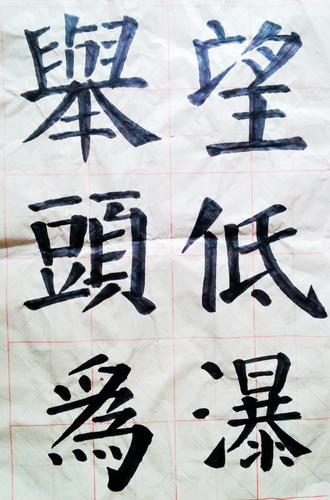 望低瀑
舉頭爲